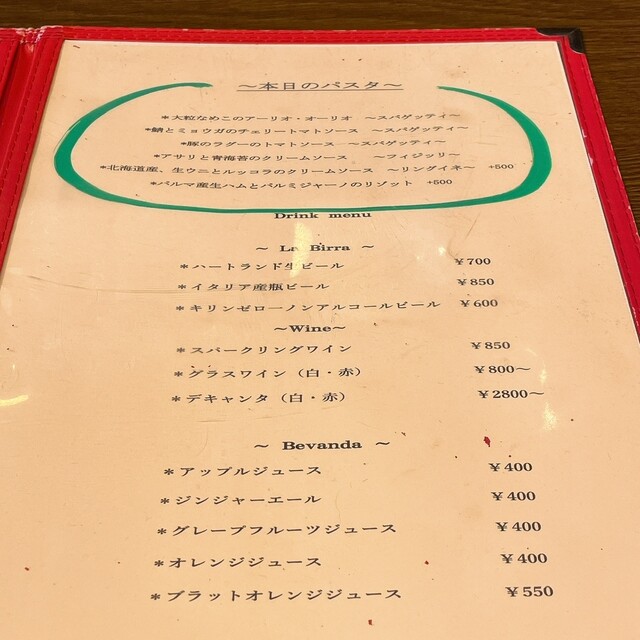 ～本日のパスタ～
＊大粒なめこのアーリオ・オーリオ　～スパゲッティ～
＊鯖とミョウガのチェリートマトソース　～スパゲッティ～
＊豚のラグーのトマトソース　～スパゲッティ～
＊アサリと青海苔のクリームソース　～フィジッリ～
＊北海道産、生ウニとルッコラのクリームソース　～リングイネ～　+500
＊パルマ産生ハムとパルミジャーノのリゾット　+500
Drink menu
～ La Birra ～
＊ハートランド生ビール　￥700
＊イタリア産瓶ビール　￥850
＊キリンゼローノンアルコールビール　￥600
～Wine～
＊スパークリングワイン　￥850
＊グラスワイン（白・赤）　￥800～
＊デキャンタ（白・赤）　￥2800～
～ Bevanda ～
＊アップルジュース　￥400
＊ジンジャーエール　￥400
＊グレープフルーツジュース　￥400
＊オレンジジュース　￥400
＊ブラットオレンジジュース　￥550